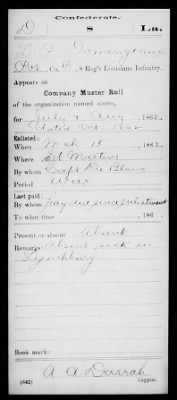 Confederate.
D 8 La.
L P Domengeaux
Pvt, Co. C, 8 Reg't Louisiana Infantry.
Appears on
Company Muster Roll
of the organization named above,
for July & Aug, 1862.
dated Dec.
Enlisted:
When Mch 18, 1862.
Where St Martins
By whom Capt De Blanc
Period War
Last paid:
By whom pay due since enlistment
To what time , 186 .
Present or absent Absent
Remarks: Absent sick in
Lynchburg
Book mark:
A A Darrah
(642) Copyist.